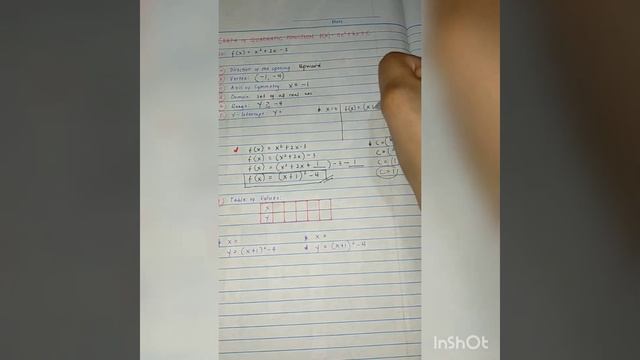 Date:
GRAPH OF QUADRATIC FUNCTION
f(x) = x² + 2x - 3
Direction of the opening: Upward
Vertex: (-1, -4)
Axis of symmetry: x = -1
Domain: set of all real nos.
Range: y ≥ -4
Y-Intercept: y=
x = 0
f(x) = x² + 2x - 3
f(x) = (x² + 2x) - 3
f(x) = (x² + 2x + 1) - 3 - 1
f(x) = (x+1)² - 4
Table of Values:
x
y
x =
x =
y = (x+1)² - 4
y = (x+1)² - 4
InShOt